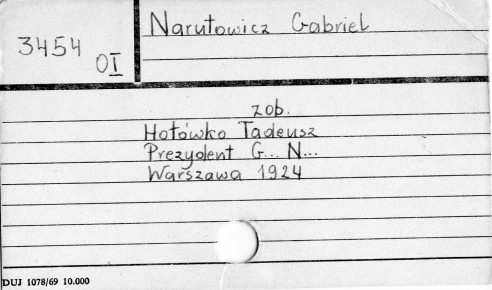 Narutowicz Gabriel
3454
OI
zob.
Hołówko Tadeusz
Prezydent G... N...
Warszawa 1924
DUJ 1078/69 10.000